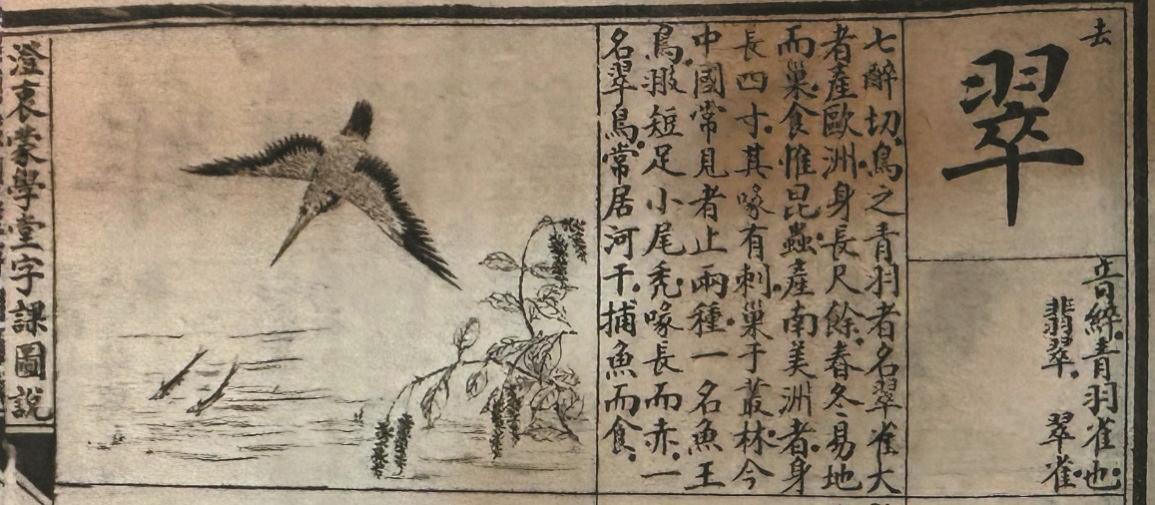 去
翠
音綷青羽雀也
翡翠 翠雀
七醉切鳥之青羽者名翠雀大
者產歐洲身長尺餘春冬易地
而巢食惟昆蟲產南美洲者身
長四寸其喙有刺巢于叢林今
中國常見者止兩種一名魚王
鳥翄短足小尾禿喙長而赤一
名翠鳥常居河干捕魚而食
澄衷蒙學堂字課圖說